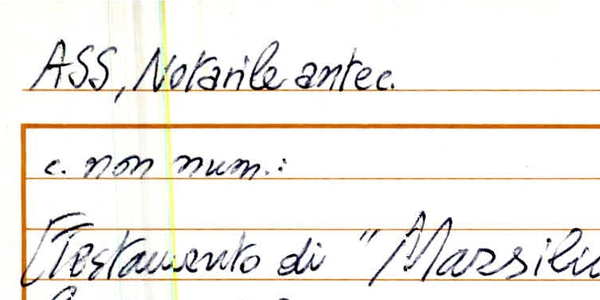 ASS, Notarile antec.
c. non num.:
[Testamento di "Massili